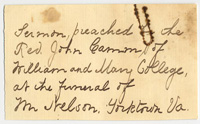 Sermon, preached by the
Rev John Camm, of
William and Mary College,
at the funeral of
Wm Nelson, Yorktown Va.